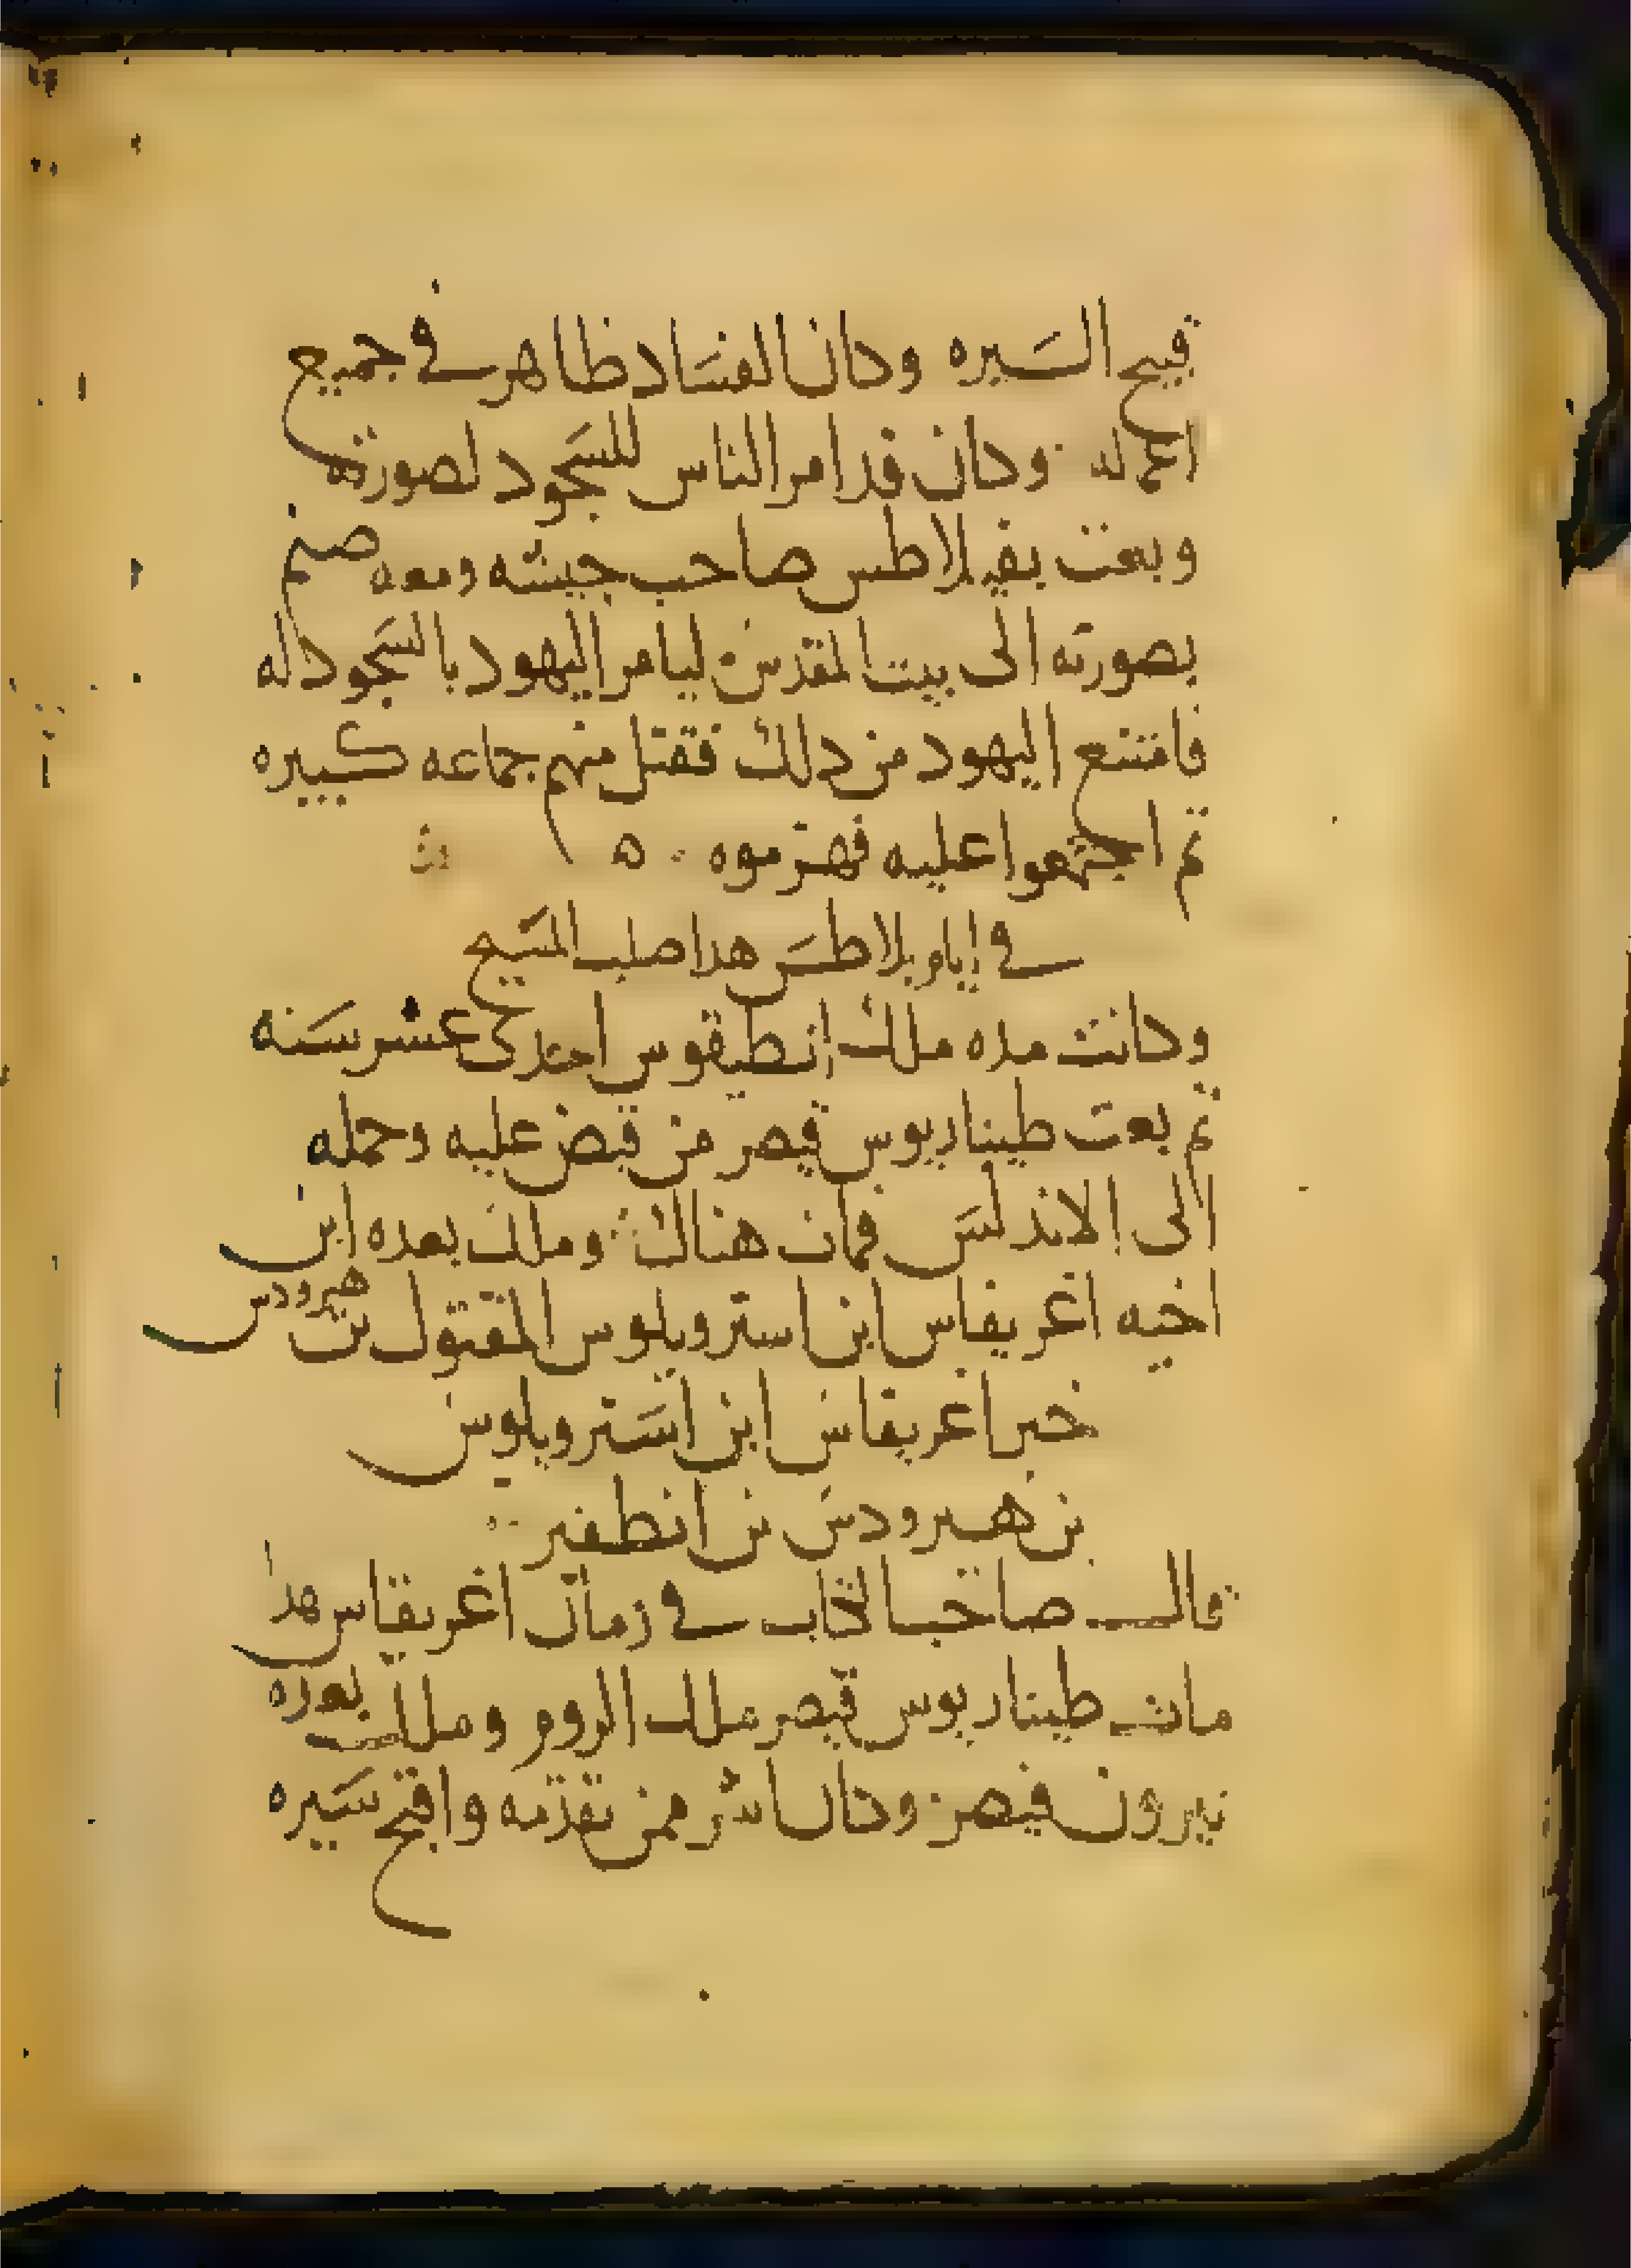 قبيح السيره وكان الفساد ظاهر في جميع
اعماله وكان قد امر الناس للسجود لصورته
وبعت بفيلاطس صاحب جيشه ومعه صنم
بصورته الى بيت المقدس ليامر اليهود بالسجود له
فامتنع اليهود من دلك فقتل منهم جماعه كبيره
تم اجتمعوا عليه فهزموه ه
في ايام بلاطس هدا صلب المسيح
وكانت مده ملك انطيقوس احدى عشر سنه
تم بعت طيباريوس قيصر من قبض عليه وحمله
الى الاندلس فمات هناك وملك بعده ابن
اخيه اغريفاس ابن استروبلوس المقتول بن هيرودس
خبر اغريفاس ابن استروبلوس
بن هيرودس بن انطفير
قال صاحب الكتاب في زمان اغريفاس هدا
مات طيباريوس قيصر ملك الروم وملك بعده
نيرون قيصر وكان اشر ممن تقدمه واقبح سيره